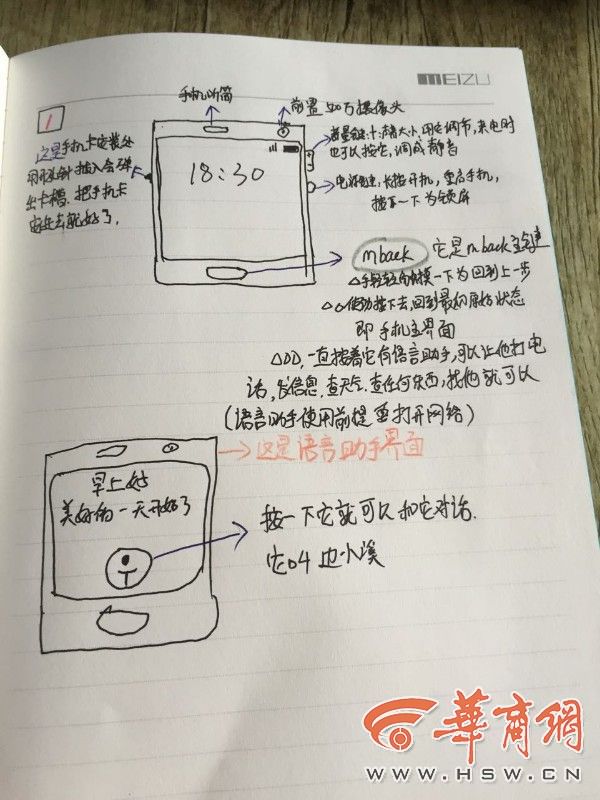 MEIZU
1
手机听筒
前置500万摄像头
这是手机卡安装处
用卡针插入会弹
出卡槽.把手机卡
安进去就好了.
音量键:十.声音大小,用它调节,来电时
也可以按它,调成静音
电源键:长按开机,重启手机,
按下一下为锁屏
18:30
mback 它是mback主键
△手轻轻触摸一下为回到上一步
△△使劲按下去,回到最初原始状态
即手机主界面
△△△,一直按着它有语言助手,可以让他打电
话,发信息,查天气.查任何东西,找他就可以
(语言助手使用前提要打开网络)
→这是语言助手界面
早上好
美好的一天开始了
按一下它就可以和它对话.
它叫边小溪
华商网
WWW.HSW.CN